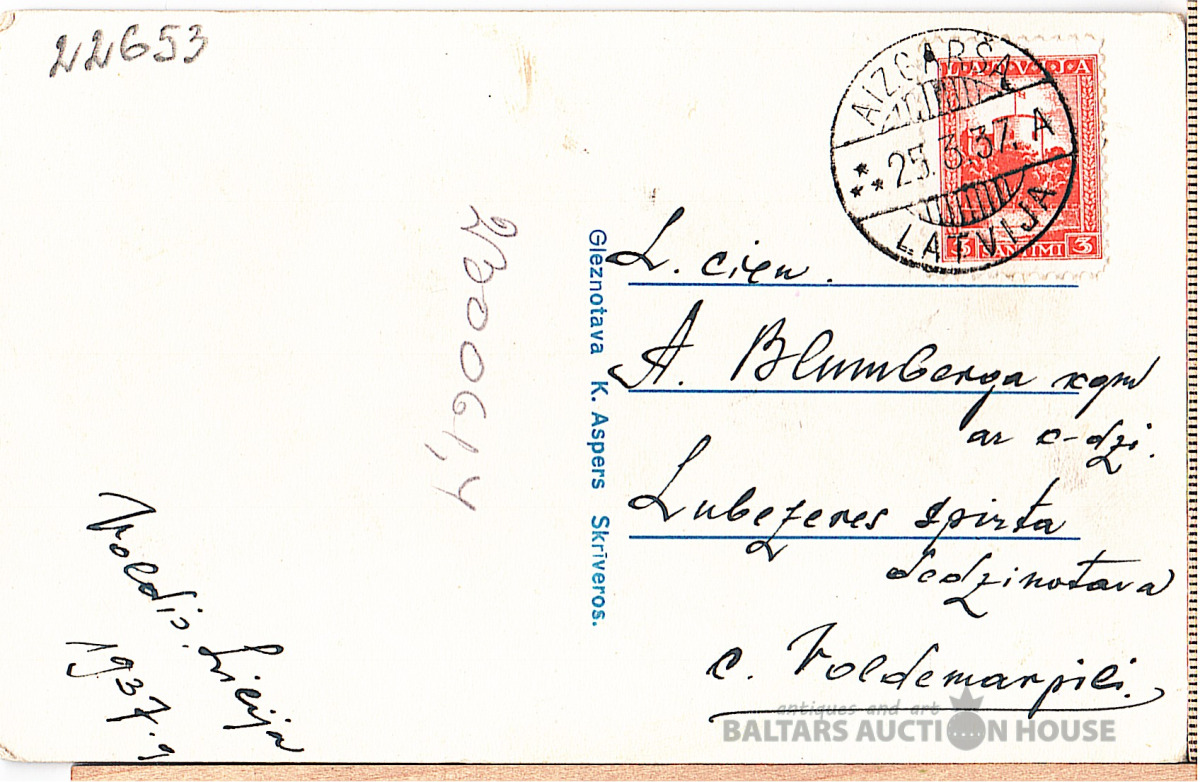 22653
AIZGARŠA
25.3.37. A
LATVIJA
LATVIJA
3 SANTIMI 3
23006,4
Gleznotava K. Aspers Skrīveros.
L. cien.
A. Blumberga kgm
ar c-dzi.
Lubezeres spirta
dedzinotava
c. Voldemarpili.
Voldis. Licija
1937.g
antiques and art
BALTARS AUCTION HOUSE